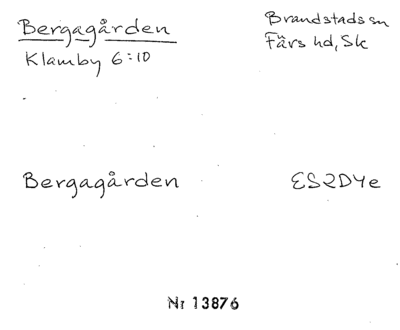 Bergagården
Brandstads sn
Klamby 6:10
Färs hd, Sk
Bergagården
ES2D4e
Nr 13876